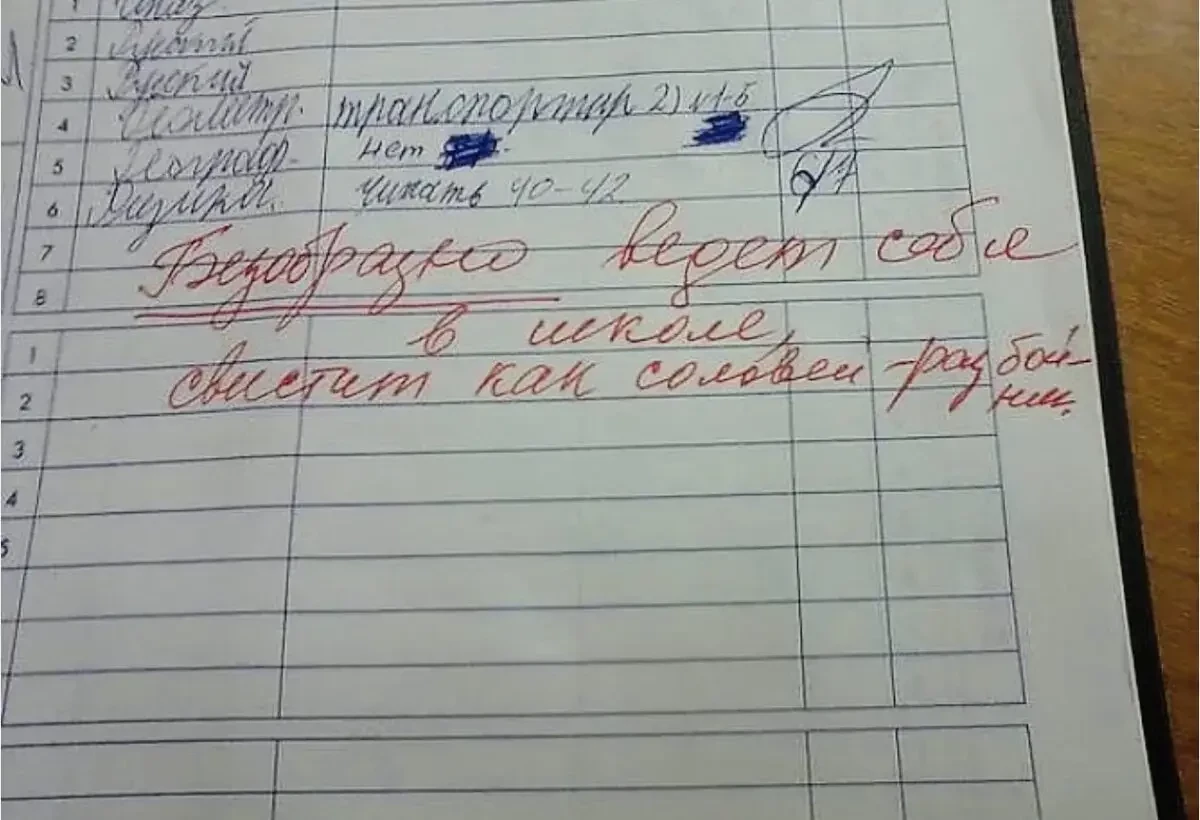 1
2 Русский
3 Русский
4 Геометр. транспортир 2) и1-5
5 Географ. нет
6 Физика. Читать 40-42 б/7
7 Безобразно ведет себя
8
1 в школе,
2 свистит как соловей-разбой-
ник.
3
4
5